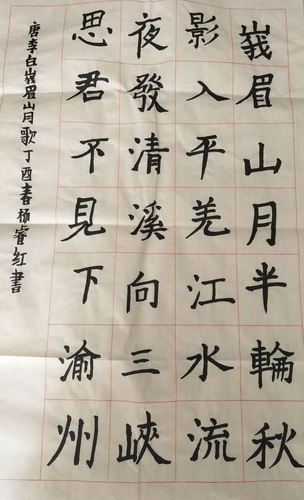 峩眉山月半輪秋
影入平羌江水流
夜發清溪向三峽
思君不見下渝州
唐李白峩眉山月歌丁酉春睿红書